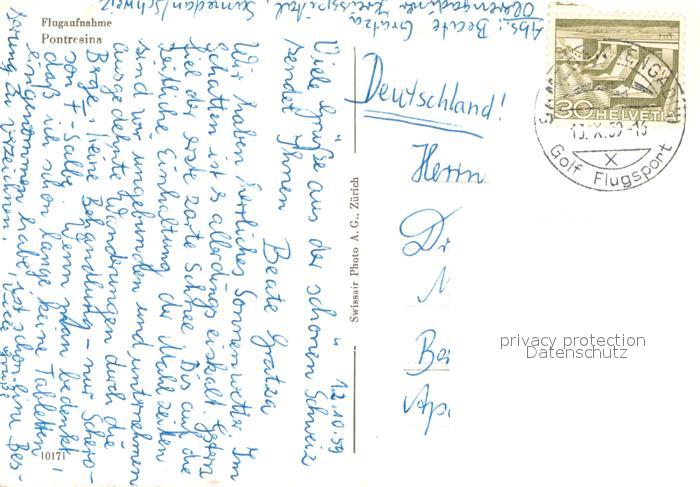 Flugaufnahme
Pontresina
Abs.: Beate Gratza
Oberengadiner Kreisspital, Samedan/Schweiz
12.10.59
Viele Grüße aus der schönen Schweiz
sendet Ihnen
Beate Gratza
Wir haben herrliches Sonnenwetter. Im
Schatten ist es allerdings eiskalt. Gestern
fiel der erste zarte Schnee. Bis auf die
zeitliche Einhaltung der Mahlzeiten
sind wir ungebunden und unternehmen
ausgedehnte Wanderungen durch die
Berge. Keine Behandlung - nur Schero-
son F-Salbe. Wenn man bedenkt,
daß ich schon lange keine Tabletten
eingenommen habe, ist schon eine Bes-
serung zu verzeichnen. Viele Grüße
10171
Swissair Photo A. G., Zürich
Deutschland!
Herrn
Dr
M
Bei
Ap
30 HELVETIA
13.X.59-13
X
Golf Flugsport
privacy protection
Datenschutz